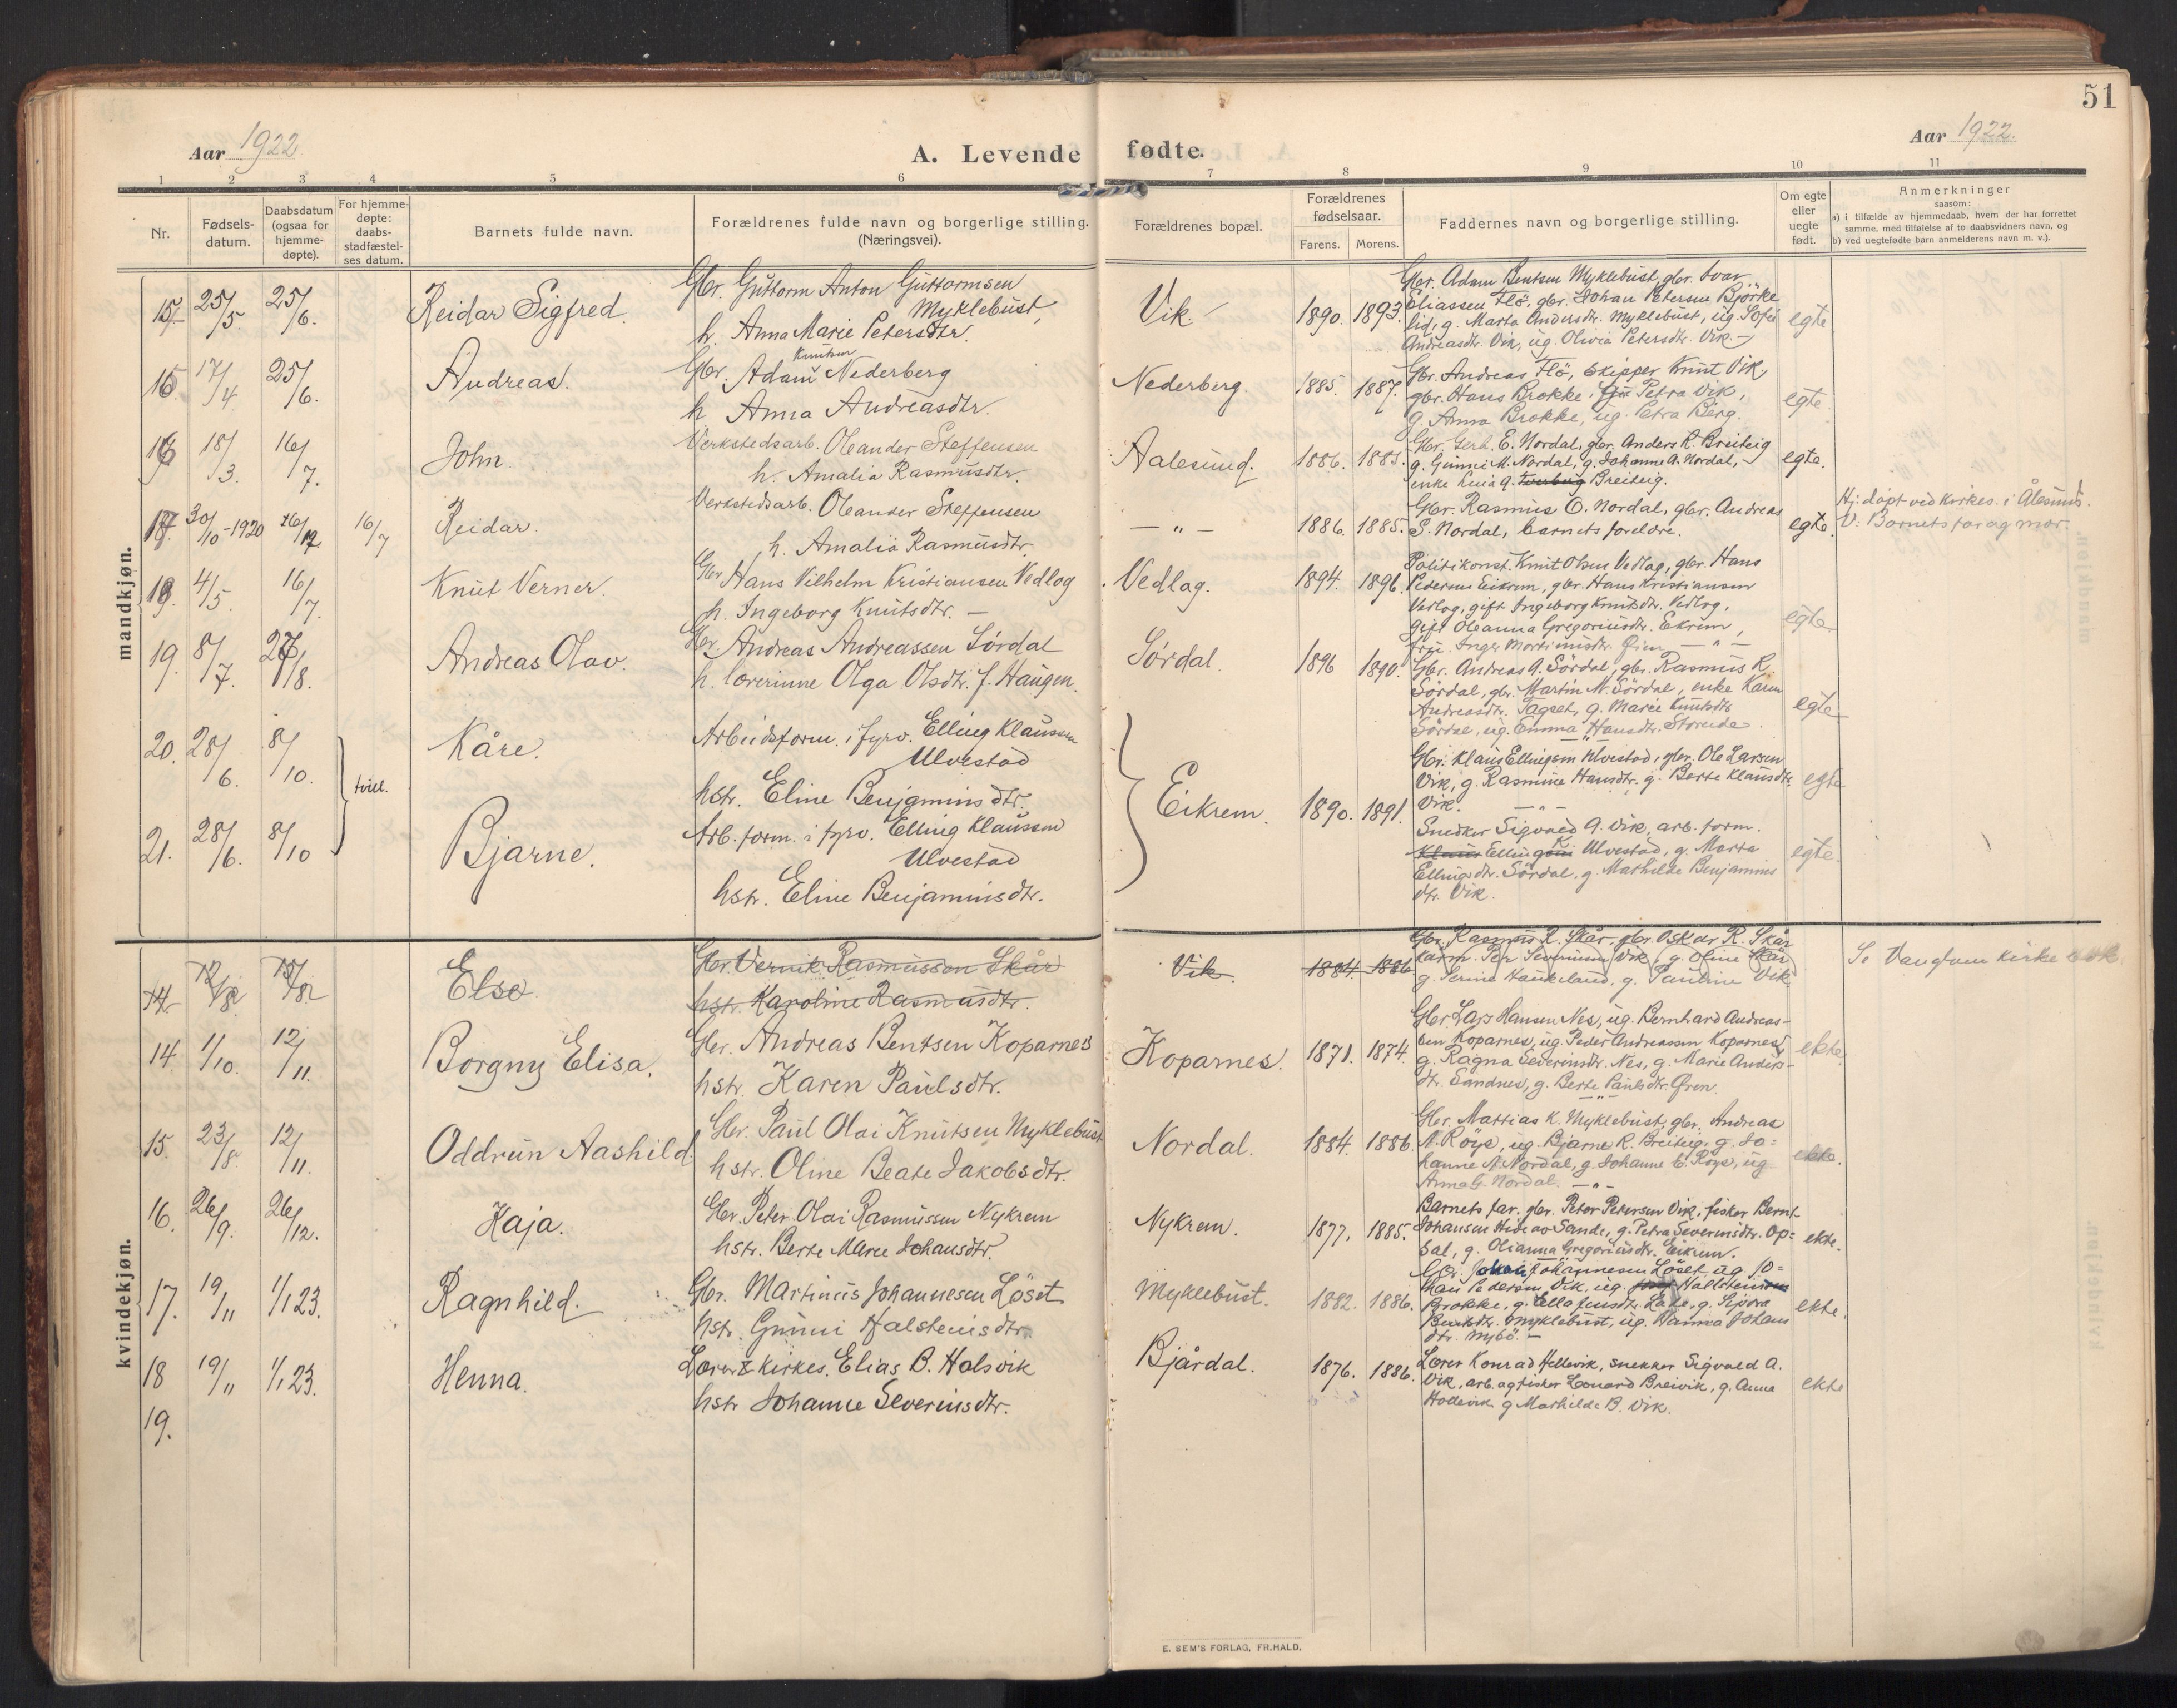 51
Aar 1922
A. Levende fødte.
Aar 1922.
1 2 3 4 5 6 7 8 9 10 11
Nr.
Fødsels-
datum.
Daabsdatum
(ogsaa for
hjemme-
døpte).
For hjemme-
døpte:
daabs-
stadfæstel-
ses datum.
Barnets fulde navn.
Forældrenes fulde navn og borgerlige stilling.
(Næringsvei).
Forældrenes bopæl.
Forældrenes
fødselsaar.
Farens. Morens.
Faddernes navn og borgerlige stilling.
Om egte
eller
uegte
født.
Anmerkninger
saasom:
a) i tilfælde av hjemmedaab, hvem der har forrettet
samme, med tilføielse af to daabsvidners navn, og
b) ved uegtefødte barn anmelderens navn m. v.).
mandkjøn.
15 25/5. 25/6. Reidar Sigfred.
Gbr. Guttorm Anton Guttormsen
Myklebust,
h. Anna Marie Petersdtr.
Vik. 1890. 1893.
Gbr. Adam Bentsen Myklebust, gbr. Ivar
Eliassen Flö, gbr. Johan Petersen Björke
lid, g. Marta Andersdtr. Myklebust, ug. Sofie
Andreasdtr. Vik, ug. Olivia Petersdtr. Vik.
egte
16. 17/4 25/6. Andreas.
Gbr. Adam Knutsen Nederberg
h. Anna Andreasdtr.
Nederberg. 1885. 1887.
Gbr. Andreas Flö, skipper Knut Vik,
gbr. Hans Brokke, Petra Vik,
g. Anna Brokke, ug. Petra Berg.
egte
18/3. 16/7. John.
Verkstedsarb. Oleander Steffensen
h. Amalia Rasmusdtr.
Aalesund. 1886. 1885.
Gbr. Gerh. E. Nordal, gbr. Anders R. Breiteig
g. Gunni M. Nordal, g. Johanne A. Nordal,
enke Breiteig.
egte.
30/10-1920 16/7 Reidar.
Verkstedsarb. Oleander Steffensen
h. Amalia Rasmusdtr.
— " — 1886. 1885.
Gbr. Rasmus O. Nordal, gbr. Andreas
S. Nordal, barnets foreldre.
egte.
Hj: døpt ved kirkes. i Ålesund.
V: Barnets far og mor.
4/5. 16/7. Knut Verner.
Gbr. Hans Vilhelm Kristiansen Vedlog
h. Ingeborg Knutsdtr. —
Vedlag. 1894. 1896.
Politikonst. Knut Olsen Vedlag, gbr. Hans
Pedersen Eikrem, gbr. Hans Kristiansen
Vedlog, gift Ingeborg Knutsdtr. Vedlog,
gift Oleanna Gregoriusdtr. Ekrem,
fru. Inger Martinusdtr.
egte
19. 8/7. 27/8. Andreas Olav.
Gbr. Andreas Andreassen Sørdal
h. lærerinne Olga Olsdtr. f. Haugen.
Sørdal. 1896 1890.
Gbr. Andreas A. Sördal, gbr. Rasmus K.
Sördal, gbr. Martin M. Sördal, enke Karen
Andreasdtr. Tagset, g. Marie Knutsdtr.
Sördal, ug. Emma Hansdtr. Storeide.
egte
20. 28/6. 8/10. tvill. Kåre.
Arbeidsform. i fyrv. Elling Klaussen
Ulvestad
hstr. Eline Benjaminsdtr.
Eikrem. 1890. 1891.
Gbr. Klaus Ellingsen Ulvestad, gbr. Ole Larsen
Vik, g. Rasmine Hansdtr. g. Berte Klausdtr.
Vik. — " —
egte
21. 28/6. 8/10 Bjarne.
Arb. form. i fyrv. Elling Klaussen
Ulvestad
hstr. Eline Benjaminsdtr.
Snedker Sigvald A. Vik, arb. form.
Klaus Elling K Ulvestad, g. Marta
Ellingsdtr. Sördal, g. Mathilde Benjamins
dtr. Vik.
egte.
kvindekjøn.
14 Else.
Gbr. Vernik Rasmussen Skår
hstr. Karoline Rasmusdtr.
Vik 1884. 1886
Gbr. Rasmus R. Skår, gbr. Oskar R. Skår
Vik, g. Oline Skår
g. Serine Haukeland, g. Pauline Vik.
Se kirke bok
14. 1/10. 12/11. Borgny Elisa.
Gbr. Andreas Bentsen Koparnes
hstr. Karen Paulsdtr.
Koparnes. 1871. 1874.
Gbr. Lars Hansen Nes, ug. Bernhard Andreas-
sen Koparnes, ug. Peder Andreassen Koparnes,
g. Ragna Severinsdtr. Nes, g. Marie Anders-
dtr. Sandnes, g. Berte Paulsdtr. Ören.
ekte.
15. 23/8. 12/11. Oddrun Aashild.
Gbr. Paul Olai Knutsen Myklebust
hstr. Oline Beate Jakobsdtr.
Nordal. 1884. 1886.
Gbr. Mattias K. Myklebust, gbr. Andreas
A. Röys, ug. Bjarne R. Breiteig, g. Jo=
hanne A. Nordal, g. Johanne C. Röys, ug
Anna G. Nordal. — " —
ekte.
16. 26/9. 26/12. Kaja.
Gbr. Peter Olai Rasmussen Nykrem
hstr. Berte Marie Johansdtr.
Nykrem. 1877. 1885.
Barnets far, gbr. Peter Petersen Vik, fisker Bernt
Johansen Hide av Sande, g. Petra Severinsdtr. Op=
sal, g. Olianna Gregoriusdtr. Eikrem.
ekte.
17. 19/11 1/1 23. Ragnhild.
Gbr. Martinus Johannesen Löset
hstr. Gunni Halstensdtr.
Myklebust. 1882. 1886.
Gbr. Johan Johannesen Löset, ug. Jo=
han Pedersen Vik, ug. Hallstein
Brokke, g. Ella Jensdtr. g.
Bentsdtr. Myklebust, ug. Hanna Johans
dtr. Nybö. —
ekte.
18 19/11 1/1 23. Henna.
Lærer & kirkes. Elias B. Halsvik
hstr Johanne Severinsdtr.
Bjårdal. 1876. 1886.
Lærer Konrad Hellevik, snekker Sigvald A.
Vik, arb. og fisker Lonard Breivik, g. Anna
Hollevik g Mathilde B. Vik.
ekte
19.
E. SEM'S FORLAG, FR.HALD.